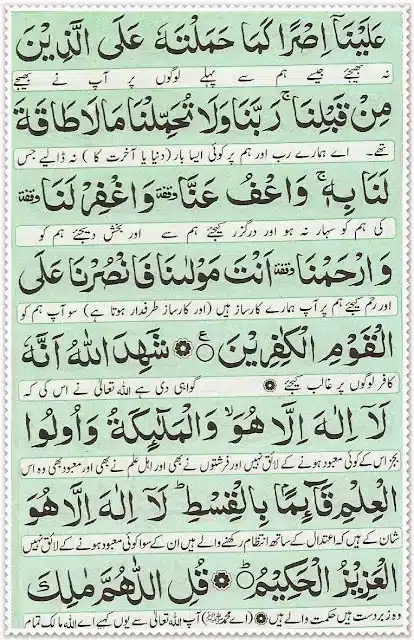 عَلَيْنَآ اِصْرًا كَمَا حَمَلْتَهٗ عَلَى الَّذِيْنَ
نہ بھیجئے جیسے ہم سے پہلے لوگوں پر آپ نے بھیجے
مِنْ قَبْلِنَا ۚ رَبَّنَا وَلَا تُحَمِّلْنَا مَا لَا طَاقَةَ
تھے۔ اے ہمارے رب اور ہم پر کوئی ایسا بار (دنیا یا آخرت کا) نہ ڈالیے جس
لَنَا بِهٖ ۚ وَاعْفُ عَنَّا وقفة وَاغْفِرْ لَنَا وقفة
کی ہم کو سہار نہ ہو اور درگزر کیجئے ہم سے اور بخش دیجئے ہم کو
وَارْحَمْنَا وقفة اَنْتَ مَوْلٰىنَا فَانْصُرْنَا عَلَى
اور رحم کیجئے ہم پر آپ ہمارے کارساز ہیں (اور کارساز طرفدار ہوتا ہے) سو آپ ہم کو
الْقَوْمِ الْكٰفِرِيْنَ ۝ ع شَهِدَ اللّٰهُ اَنَّهٗ
کافر لوگوں پر غالب کیجئے گواہی دی ہے اللہ تعالٰی نے اس کی کہ
لَآ اِلٰهَ اِلَّا هُوَ ۙ وَالْمَلٰٓئِكَةُ وَاُولُوا
بجز اس کے کوئی معبود ہونے کے لائق نہیں اور فرشتوں نے بھی اور اہل علم نے بھی اور معبود بھی وہ اس
الْعِلْمِ قَآئِمًۢا بِالْقِسْطِ ؕ لَآ اِلٰهَ اِلَّا هُوَ
شان کے ہیں کہ اعتدال کے ساتھ انتظام رکھنے والے ہیں ان کے سوا کوئی معبود ہونے کے لائق نہیں
الْعَزِيْزُ الْحَكِيْمُ ؕ ۝ قُلِ اللّٰهُمَّ مٰلِكَ
وہ زبردست ہیں حکمت والے ہیں (اے محمد ﷺ) آپ اللہ تعالٰی سے یوں کہیے اے اللہ مالک تمام